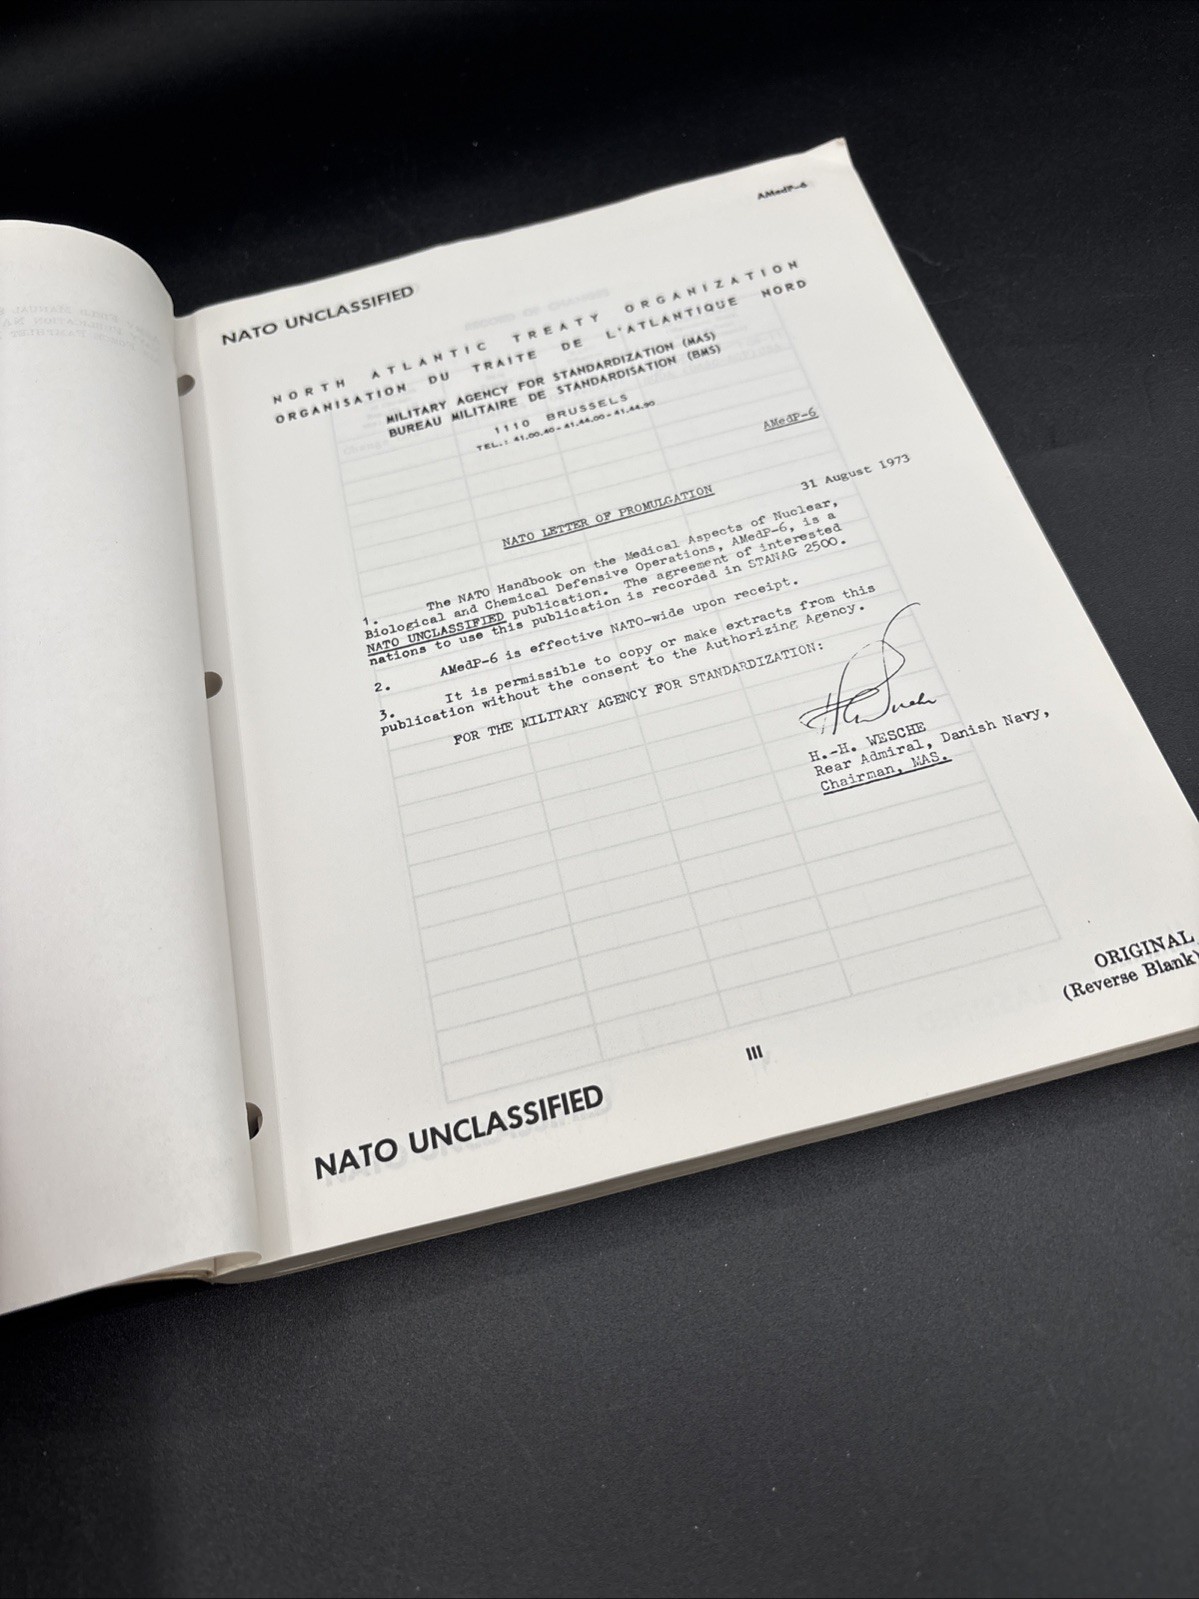 AMedP-6
NATO UNCLASSIFIED
NORTH ATLANTIC TREATY ORGANIZATION
ORGANISATION DU TRAITE DE L'ATLANTIQUE NORD
MILITARY AGENCY FOR STANDARDIZATION (MAS)
BUREAU MILITAIRE DE STANDARDISATION (BMS)
1110 BRUSSELS
TEL.: 41.00.40 - 41.44.00 - 41.44.90
AMedP-6
31 August 1973
NATO LETTER OF PROMULGATION
1. The NATO Handbook on the Medical Aspects of Nuclear,
Biological and Chemical Defensive Operations, AMedP-6, is a
NATO UNCLASSIFIED publication. The agreement of interested
nations to use this publication is recorded in STANAG 2500.
2. AMedP-6 is effective NATO-wide upon receipt.
3. It is permissible to copy or make extracts from this
publication without the consent to the Authorizing Agency.
FOR THE MILITARY AGENCY FOR STANDARDIZATION:
H.-H. WESCHE
Rear Admiral, Danish Navy,
Chairman, MAS.
ORIGINAL
(Reverse Blank)
III
NATO UNCLASSIFIED